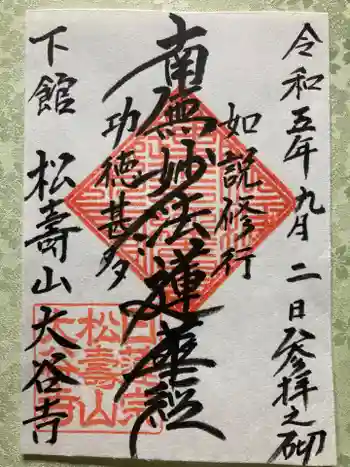 令和五年九月二日参拝之砌
如説修行
南無妙法蓮華経
功徳甚多
下館 松壽山 大谷寺
日蓮宗
松壽山
大谷寺